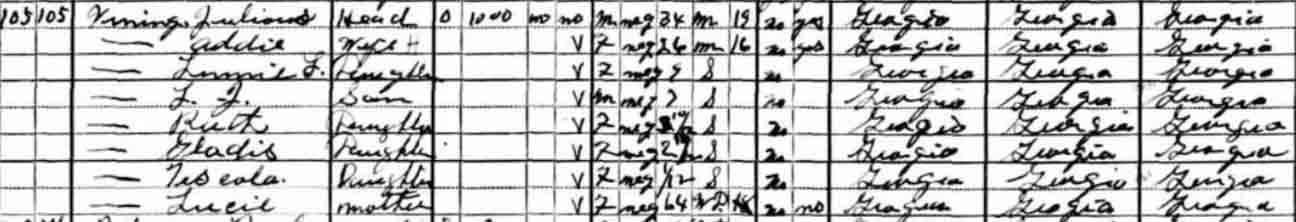 105 105 Vining Julious Head O 1000 no no M neg 34 M 19 no yes Georgia Georgia Georgia
— Addie Wife H V F neg 26 M 16 no yes Georgia Georgia Georgia
— F. Daughter V F neg 9 S no Georgia Georgia Georgia
— L. J. Son V M neg 7 S no Georgia Georgia Georgia
— Ruth Daughter V F neg S no Georgia Georgia Georgia
— Gladis Daughter V F neg S no Georgia Georgia Georgia
— Tescola Daughter V F neg /12 S no Georgia Georgia Georgia
— Lucil mother V F neg 64 WD no no Georgia Georgia Georgia